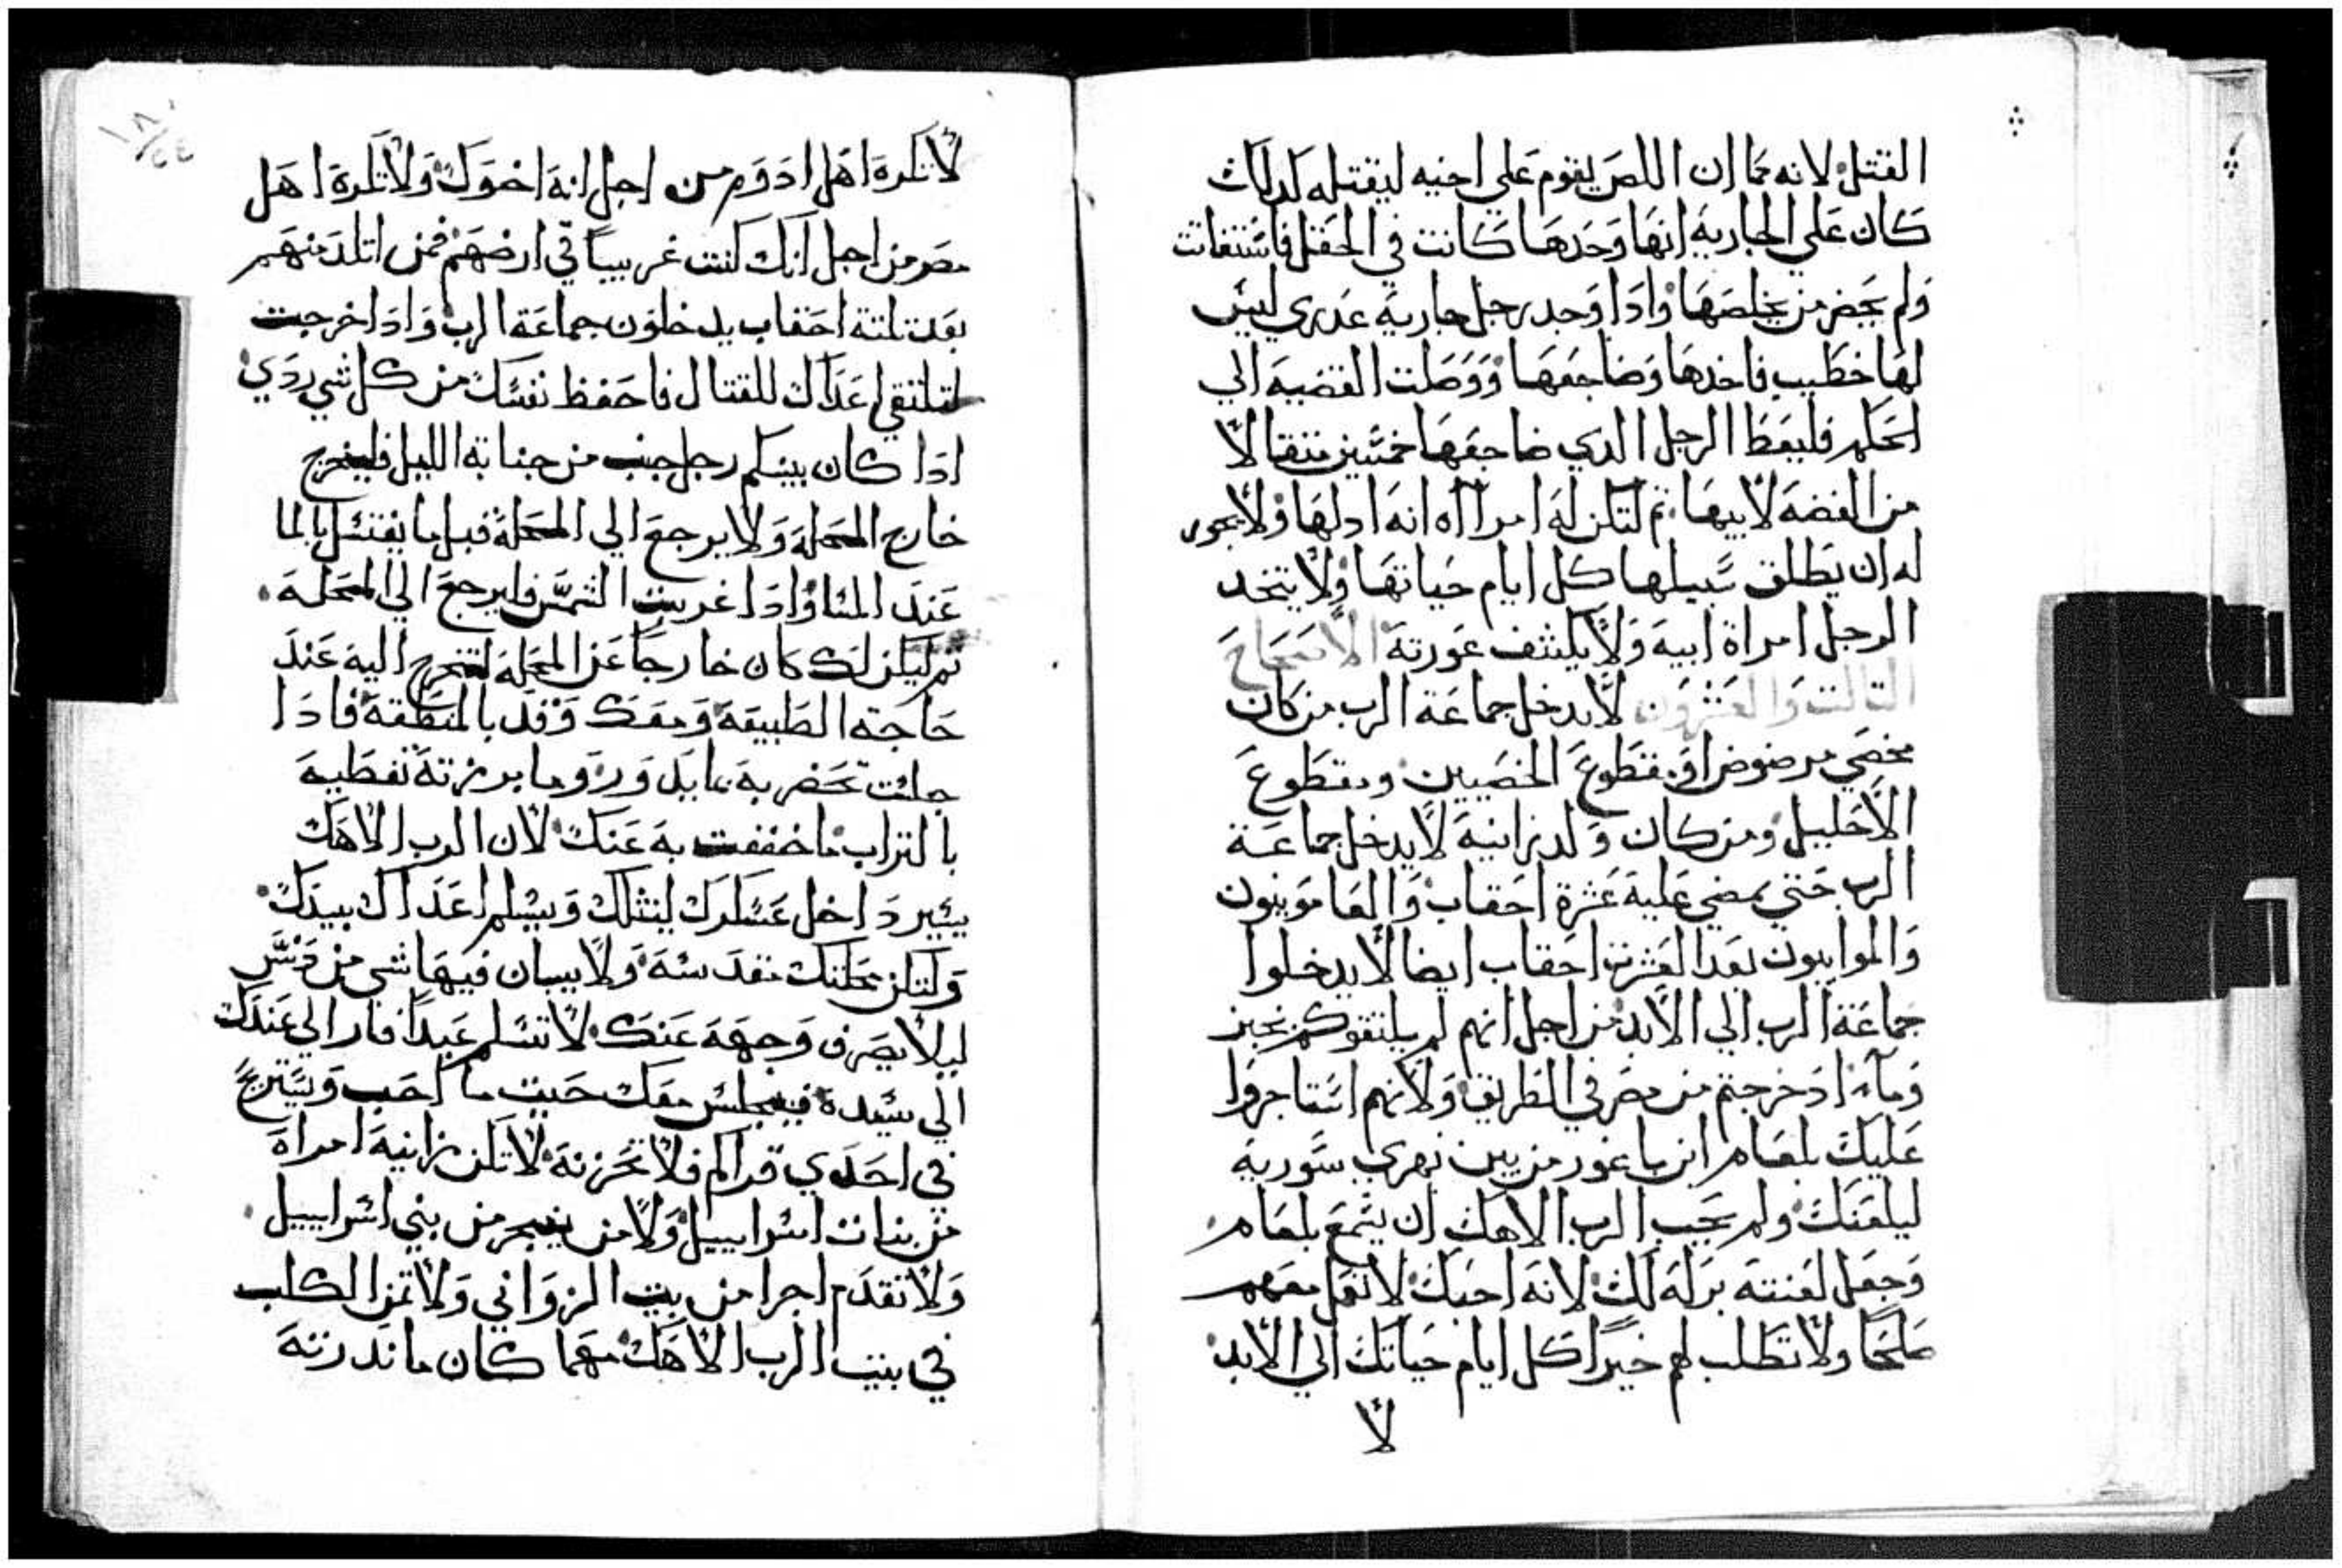 القتل لانه كما ان اللص يقوم علي اخيه ليقتله كدلك
كان علي الجارية انها وحدها كانت في الحقل فاستغاتت
ولم يحضر من يخلصها وادا وجد رجل جارية عدري ليس
لها خطيب فاخدها وضاجعها ووصلت القضية الي
الحكم فليعط الرجل الدي ضاجعها خمسين متقالا
من الفضة لابيها تم لتكن له امراه انه ادلها ولا يجوز
له ان يطلق سبيلها كل ايام حياتها ولا يتخد
الرجل امراة ابية ولا يكشف عورتة الاصحاح
التالت والعشرون لا يدخل جماعة الرب من كان
مخصي مرضوض او مقطوع الخصيين ومقطوع
الاحليل ومن كان ولد زانية لا يدخل جماعة
الرب حتي يمضي علية عشرة احقاب والعامونيون
والموابيون بعد العشرة احقاب ايضا لا يدخلوا
جماعة الرب الي الابد من اجل انهم لم يلتقوكم بخبز
وماء اد خرجتم من مصر في الطريق ولانهم استاجروا
عليك بلعام ابن باعور من بين نهري سورية
ليلعنك ولم يحب الرب الاهك ان يسمع بلعام
وجعل لعنته بركة لك لانة احبك لا تعمل معهم
صلحا ولا تطلب لهم خيرا كل ايام حياتك الي الابد
لا
لا تكره اهل ادوم من اجل انة اخوك ولا تكرة اهل
مصر من اجل انك كنت غريبا في ارضهم فمن اتلد منهم
بعد تلتة احقاب يدخلون جماعة الرب وادا خرجت
لتلتقي اعداك للقتال فاحفظ نفسك من كل شي ردي
ادا كان بينكم رجل جنب من جنابة الليل فليخرج
خارج المحلة ولا يرجع الي المحلة قبل ما يغتسل بالما
عند المسا وادا غربت الشمس فليرجع الي المحلة
تم ليكن لك مكان خارجا عن المحلة لتخرج الية عند
حاجة الطبيعة ومعك وتد بالمنطقة فادا
جلست تحضر بة مايدور وما برزتة تغطية
بالتراب ما خففت بة عنك لان الرب الاهك
يسير داخل عسكرك لينشلك ويسلم اعداك بيدك
ولتكن محلتك مقدسة ولا يبان فيها شي من دنس
ليلا يصرف وجهة عنك لا تسلم عبدا فار الي عندك
الي سيدة فيجلس معك حيت ما احب ويستريح
في احدي قراكم فلا تحزنة لا تكن زانية امراة
من بنات اسراييل ولا من يفجر من بني اسراييل
ولا تقدم اجرا من بيت الزواني ولا تمن الكلب
في بيت الرب الاهك مهما كان ما ندرتة